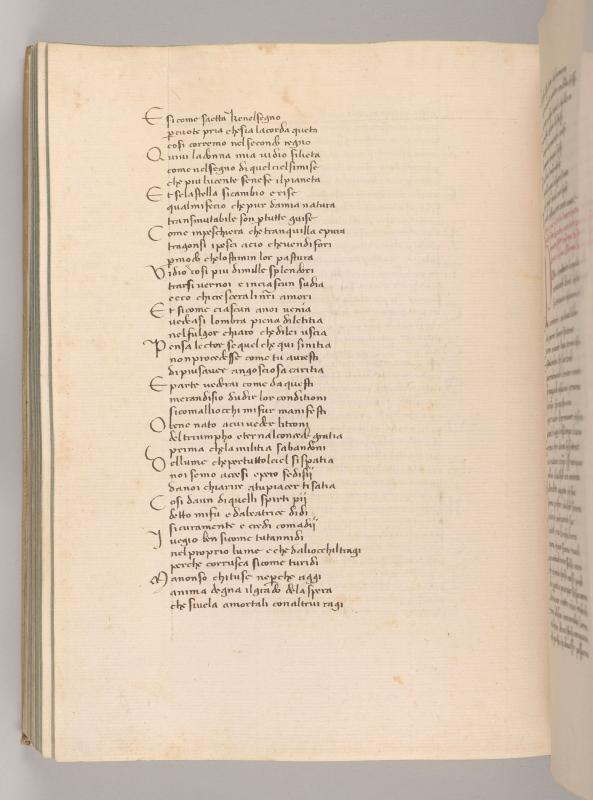 E si come saetta ke nel segno
percuote pria che sia la corda queta
cosi corremo nel secondo regno
Quivi la donna mia vidio si lieta
come nel segno di quel ciel si mise
che piu lucente se ne se il pianeta
Et se la stella si cambio e rise
qual mi fecio che pur da mia natura
transmutabile son per tutte guise
Come in peschiera che tranquilla e pura
tragonsi i pesci a cio che vien di fori
per modo che lo stimin lor pastura
Vidio cosi piu di mille splendori
trarsi ver noi e in ciascun sudia
ecco chi crescera li nostri amori
Et si come ciascun a noi venia
vedeasi lombra piena di letitia
nel fulgor chiaro che di lei uscia
Pensa lector se quel che qui sinitia
non procedesse come tu avresti
di piu savere angosciosa caritia
E par te vedrai come da questi
mera in disio dudir lor conditioni
si come alli occhi mi fur manifesti
O bene nato a cui veder li troni
del triumpho eternal concede gratia
prima che la militia sabandoni
Del lume che per tutto l ciel si spatia
noi semo accesi e pero se disii
da noi chiarire a tu piacer ti satia
Cosi da un di quelli spirti pii
detto mi fu e da beatrice di di
sicuramente e credi come a dii
I vegio ben si come tu tannidi
nel proprio lume e che dali occhi l tragi
perche corrusca si come tu ridi
Ma non so chi tu se ne perche aggi
anima degna il grado dela spera
che si vela a mortali con altrui ragi